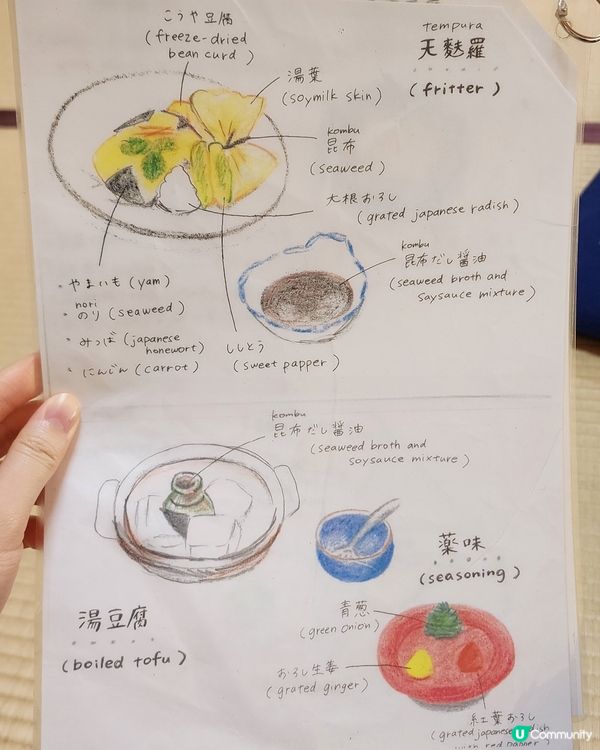 こうや豆腐
(freeze-dried
bean curd)
tempura
天麩羅
(fritter)
湯葉
(soymilk skin)
kombu
昆布
(seaweed)
大根おろし
(grated japanese radish)
kombu
昆布だし醤油
(seaweed broth and
saysauce mixture)
・やまいも (yam)
nori
・のり (seaweed)
・みつば (japanese
honewort)
・にんじん (carrot)
ししとう
(sweet papper)
kombu
昆布だし醤油
(seaweed broth and
soysauce mixture)
湯豆腐
(boiled tofu)
薬味
(seasoning)
青葱
(green onion)
おろし生姜
(grated ginger)
紅葉おろし
(grated japanese
with red
U Community